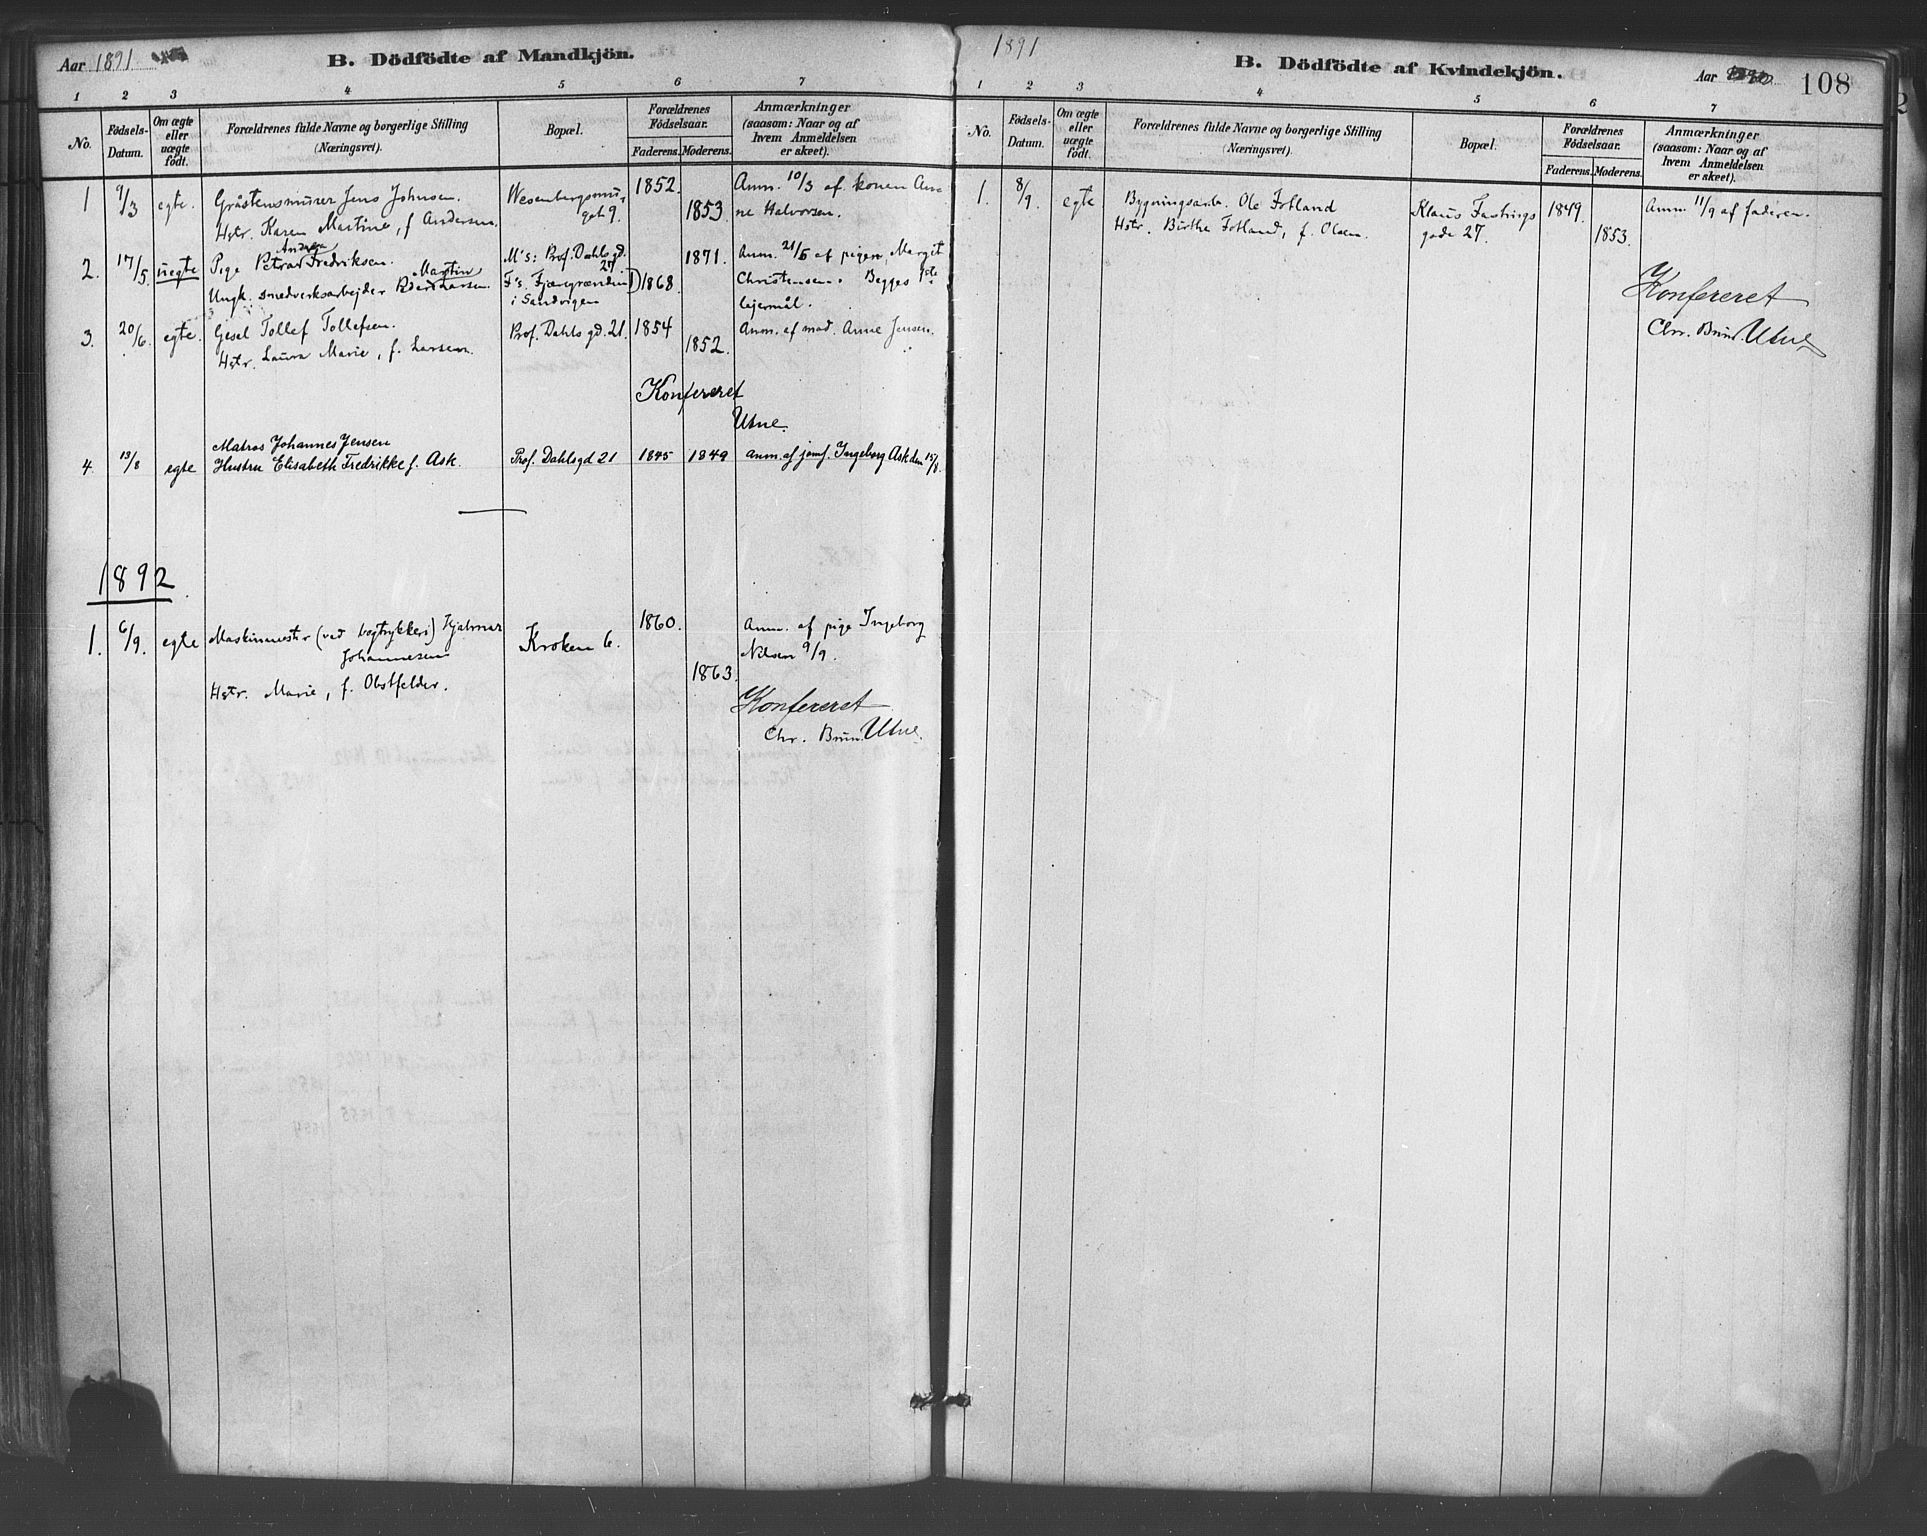 Aar 1891
B. Dödfödte af Mandkjön.
1 2 3 4 5 6 7
No. Födsels-Datum. Om ægte eller uægte födt. Forældrenes fulde Navne og borgerlige Stilling (Næringsvei). Bopæl. Forældrenes Födselsaar. Faderens. Moderens. Anmærkninger (saasom: Naar og af hvem Anmeldelsen er skeet).
1 9/3 egte. Gråstensmurer Jens Johnsen. Wesenbergsmu- 1852. Anm. 10/3 af konen An-
Hstr. Karen Martine, f. Andersen. get 9. 1853 ne Halvorsen.
Andrea
2. 17/5 uegte Pige Petra Fredriksen. M's: Prof. Dahls gd. 1871. Anm. 21/5 af pigen Margit
Martin 21.
Ungk. smedverksarbejder Larsen F's. Fjæregrænden 1868 Christensen. Begges 1ste
i Sandvigen lejermål.
3. 20/6 egte. Gesel Tollef Tollefsen. Prof. Dahls gd. 21. 1854 Anm. af mad. Anne Jensen.
Hstr. Laura Marie, f. Larsen. 1852.
Konfereret
Utne.
Matros Johannes Jensen
4. 13/8 egte Hustru Elisabeth Fredrikke f. Ask. Prof. Dahlsgd 21 1845 1849 anm. af jomf. Ingeborg Ask den 15/8.
1892
1. 6/9. egte Maskinmestr (ved bogtrykkeri) Hjalmar Kroken 6. 1860. Anm. af pige Ingeborg
Johannesen Nilsen 9/9.
Hstr. Marie, f. Obstfelder. 1863.
Konfereret
Chr. Brun. Utne.
1891
B. Dödfödte af Kvindekjön.
Aar 108
1 2 3 4 5 6 7
No. Födsels-Datum. Om ægte eller uægte födt. Forældrenes fulde Navne og borgerlige Stilling (Næringsvei). Bopæl. Forældrenes Födselsaar. Faderens. Moderens. Anmærkninger (saasom: Naar og af hvem Anmeldelsen er skeet).
1. 8/9. egte Bygningsarb. Ole Fotland Klaus Fastings 1849. Anm. 11/9 af faderen.
Hstr. Birthe Fotland, f. Olsen. gade 27. 1853.
Konfereret
Chr. Brun. Utne